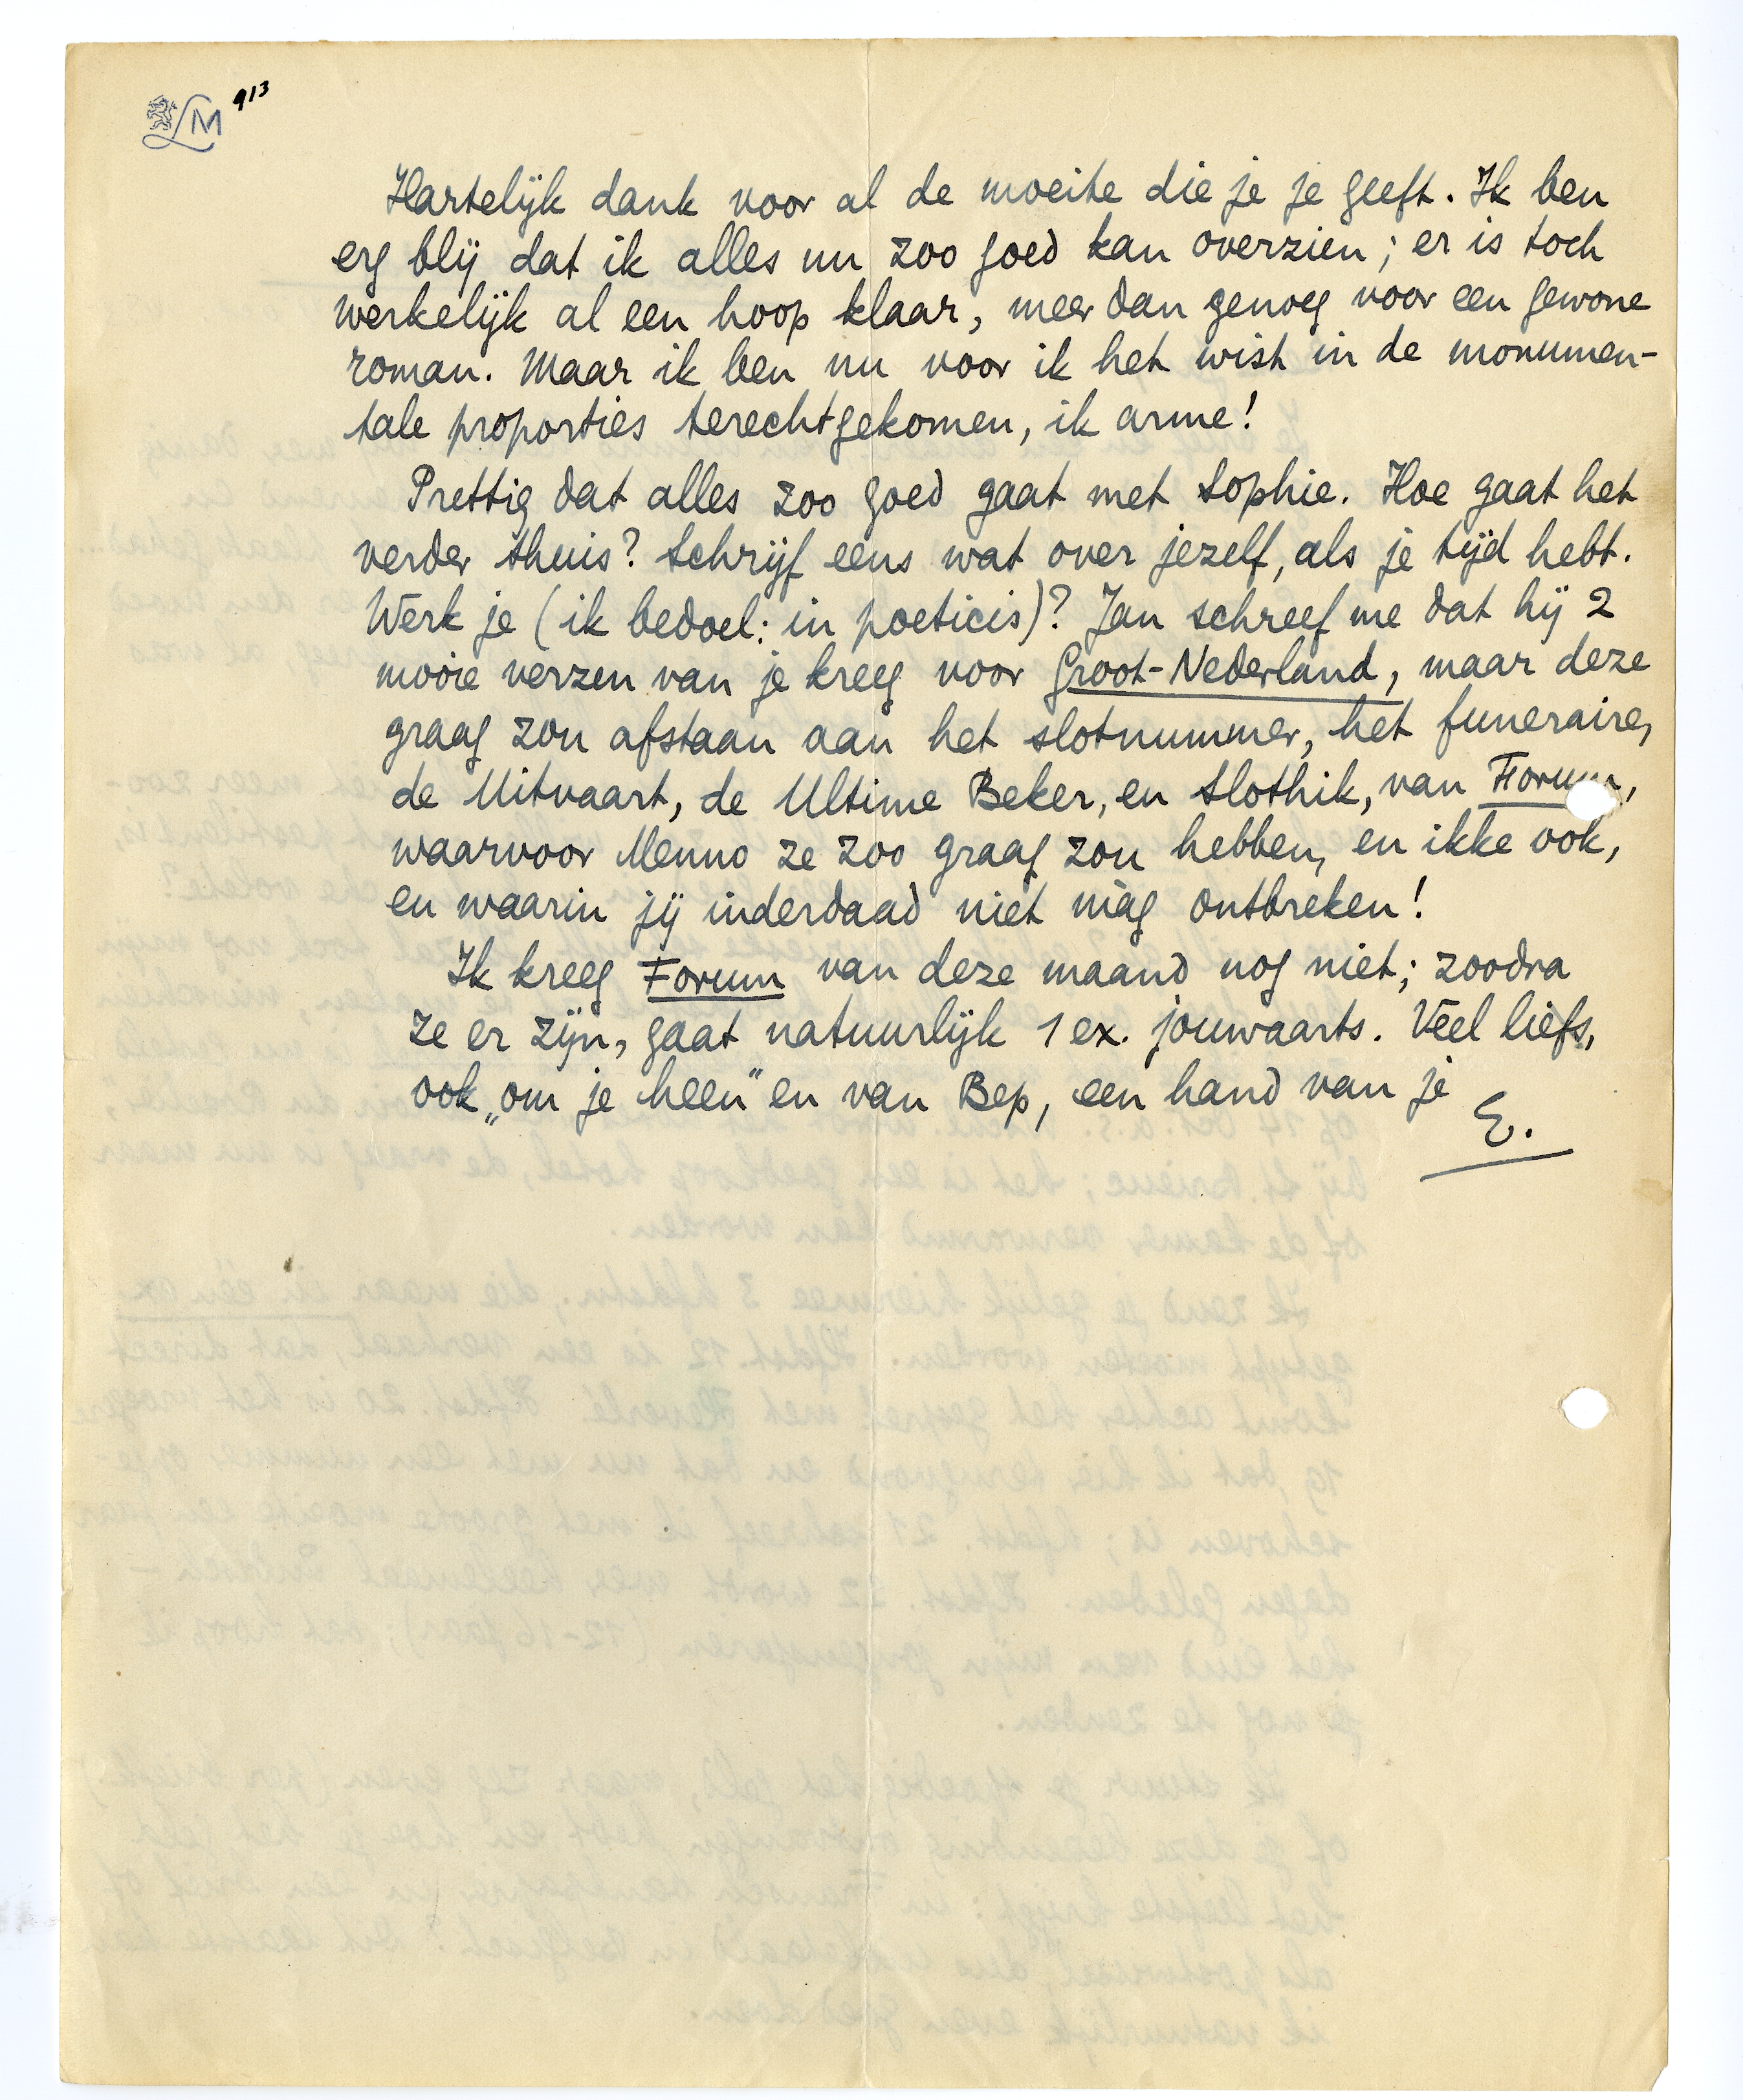 LM 913
Hartelijk dank voor al de moeite die je je geeft. Ik ben
erg blij dat ik alles nu zoo goed kan overzien; er is toch
werkelijk al een hoop klaar, meer dan genoeg voor een gewone
roman. Maar ik ben nu voor ik het wist in de monumen-
tale proporties terechtgekomen, ik arme!
Prettig dat alles zoo goed gaat met Sophie. Hoe gaat het
verder thuis? Schrijf eens wat over jezelf, als je tijd hebt.
Werk je (ik bedoel: in poeticis)? Jan schreef me dat hij 2
mooie verzen van je kreeg voor Groot-Nederland, maar deze
graag zou afstaan aan het slotnummer, het funeraire,
de Uitvaart, de Ultime Beker, en Slothik, van Forum,
waarvoor Menno ze zoo graag zou hebben, en ikke ook,
en waarin jij inderdaad niet màg ontbreken!
Ik kreeg Forum van deze maand nog niet; zoodra
ze er zijn, gaat natuurlijk 1 ex. jouwaarts. Veel liefs,
ook „om je heen" en van Bep, een hand van je
E.